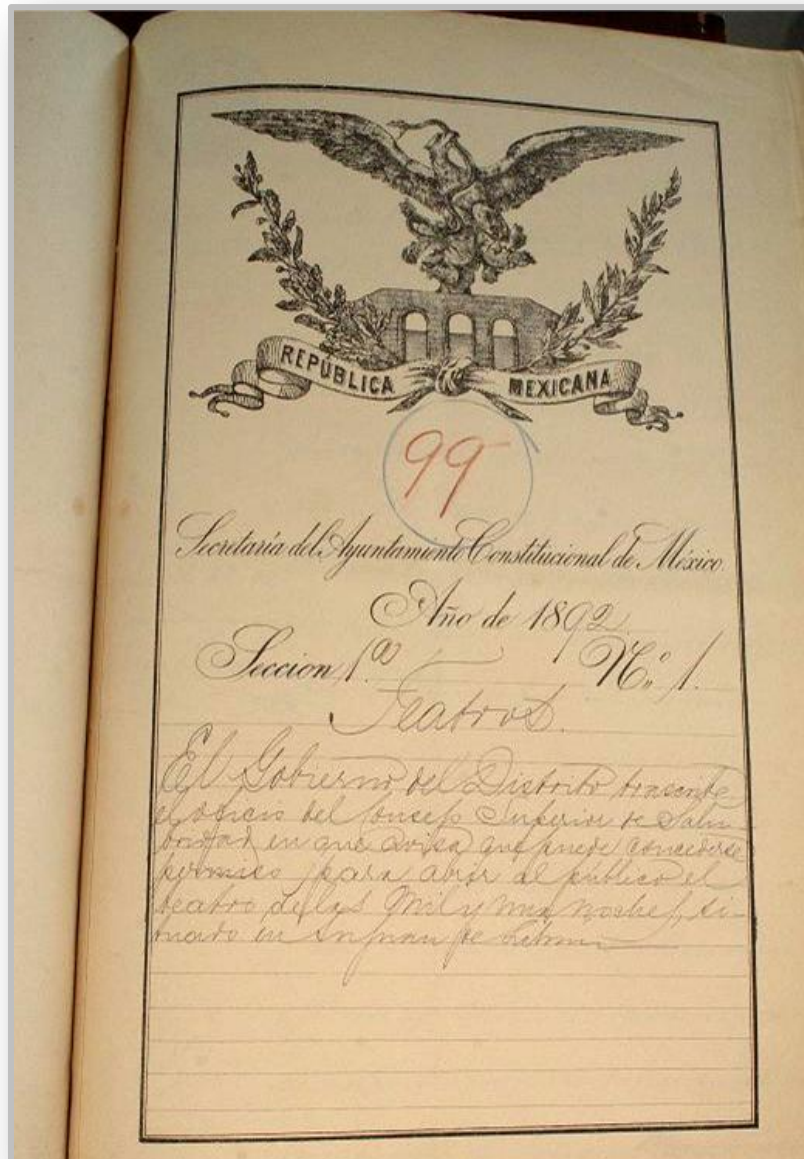 REPÚBLICA MEXICANA
99
Secretaría del Ayuntamiento Constitucional de México.
Año de 1892
Seccion 1.ª Nº. 1.
Teatros.
El Gobierno del Distrito transcribe
el oficio del Consejo Superior de Salu-
bridad en que avisa que puede concederse
permiso para abrir al público el
teatro de las Mil y una noches, si-
tuado en Sn Juan de Letran